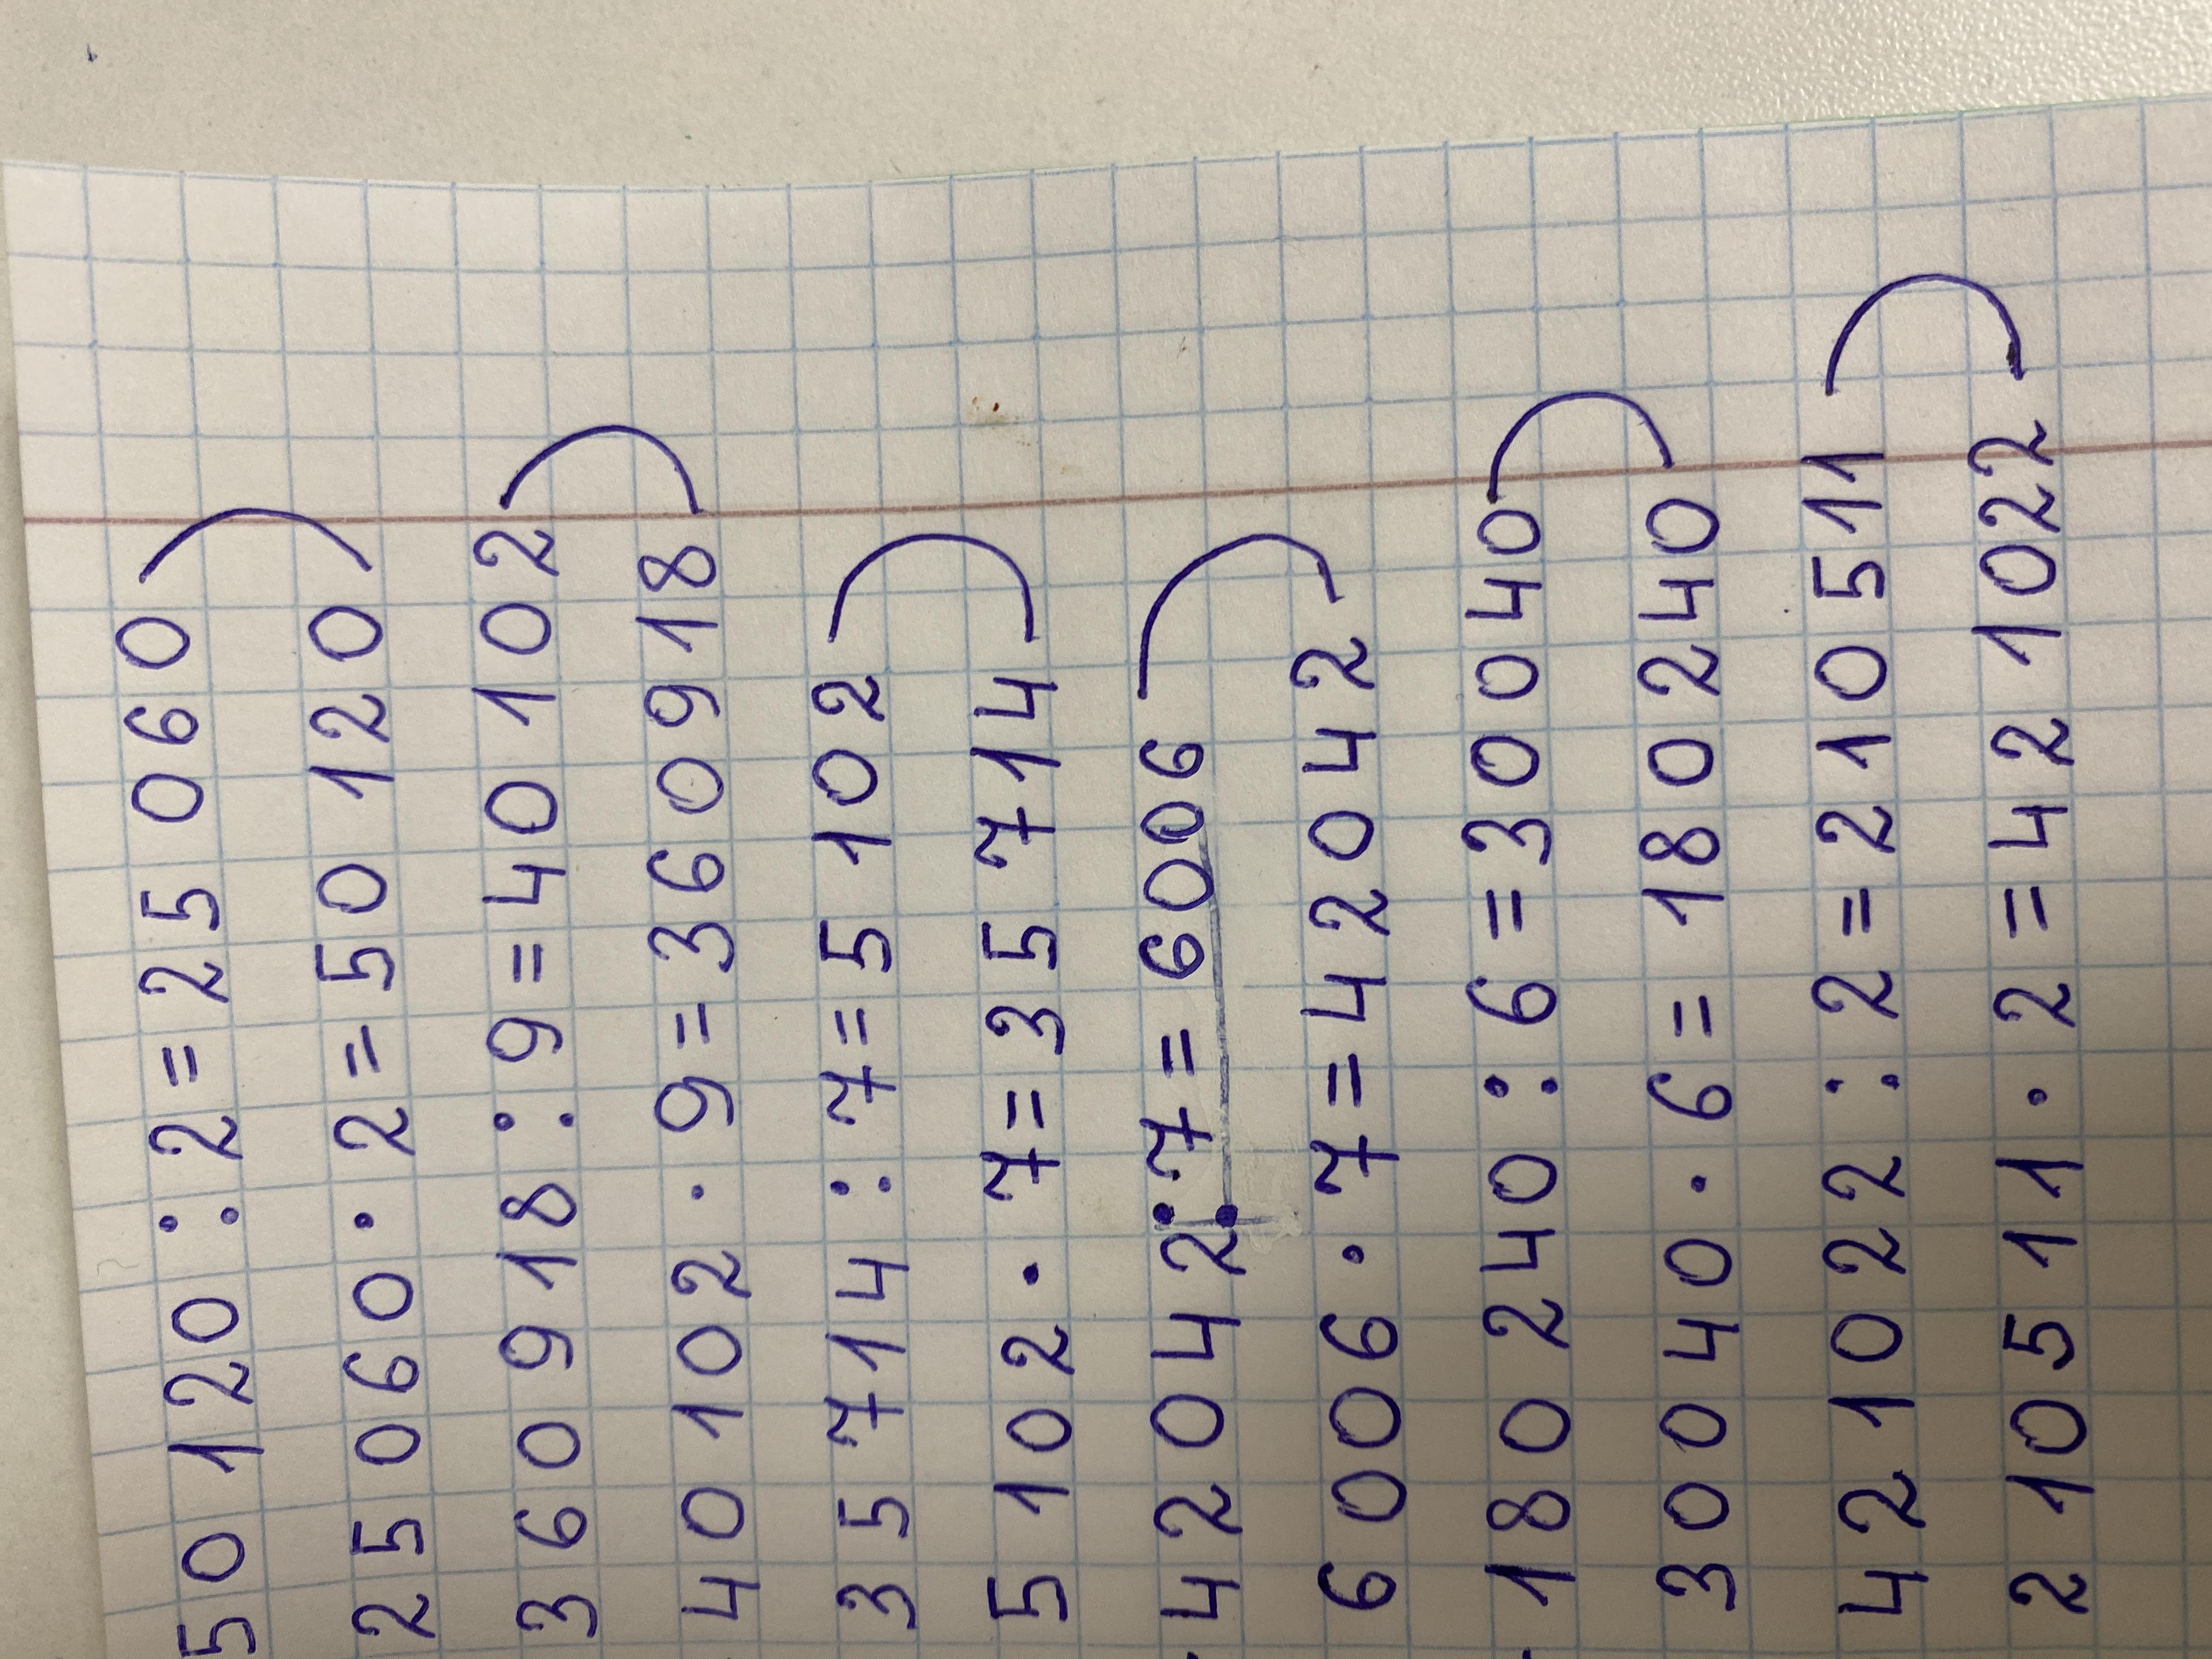 50 120 : 2 = 25 060
25 060 · 2 = 50 120
360 918 : 9 = 40 102
40 102 · 9 = 360 918
35 714 : 7 = 5 102
5 102 · 7 = 35 714
42 042 : 7 = 6006
6 006 · 7 = 42 042
180 240 : 6 = 30 040
30 040 · 6 = 180 240
421 022 : 2 = 210 511
210 511 · 2 = 421 022